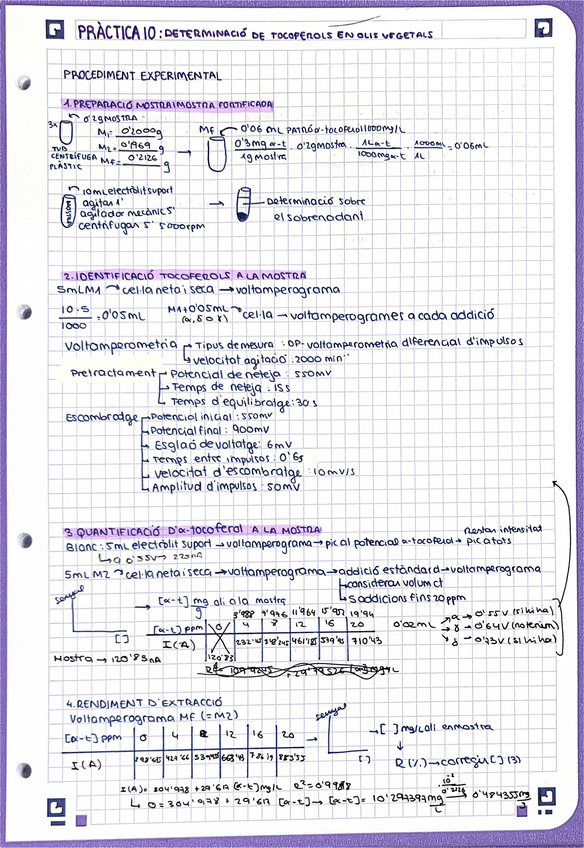 PRÀCTICA 10: DETERMINACIÓ DE TOCOFEROLS EN OLIS VEGETALS
PROCEDIMENT EXPERIMENTAL
1. PREPARACIÓ MOSTRA I MOSTRA FORTIFICADA
3x
0'2g MOSTRA
M1: 0'2000g
M2: 0'1969 g
MF= 0'2126 g
TUB CENTRÍFUGA PLÀSTIC
MF
0'06 mL PATRÓ α-tocoferol 1000mg/L
0'3mg α-t / 1g mostra · 0'2g mostra · 1L α-t / 1000mg α-t · 1000mL / 1L = 0'06mL
MOSTRA
10mL electròlit suport
agitar 1'
agitador mecànic 5'
centrífugar 5' 5000rpm
Determinació sobre
el sobrenadant
2. IDENTIFICACIÓ TOCOFEROLS A LA MOSTRA
5mL M1 → cel·la neta i seca → voltamperograma
10·5 / 1000 = 0'05mL
M1 + 0'05mL → cel·la → voltamperogrames a cada addició
Voltamperometria
Tipus de mesura: DP-voltamperometria diferencial d'impulsos
velocitat agitació: 2000 min⁻¹
Pretractament
Potencial de neteja: 550mV
Temps de neteja: 15s
Temps d'equilibratge: 30s
Escombratge
Potencial inicial: 550mV
Potencial final: 900mV
Esglaó de voltatge: 6mV
Temps entre impulsos: 0'6s
Velocitat d'escombratge: 10mV/s
Amplitud d'impulsos: 50mV
3. QUANTIFICACIÓ D'α-tocoferol A LA MOSTRA
Restar intensitat
Blanc: 5mL electròlit suport → voltamperograma → pic al potencial α-tocoferol → pic a tots
5mL M2 → cel·la neta i seca → voltamperograma → addició estàndard → voltamperograma
considerar volum ct
5 addicions fins 20ppm
senyal
[ ]
[α-t] mg oli a la mostra
[α-t] ppm 0 4 8 12 16 20
I(A)
710'43
120'83
Mostra → 120'83nA
0'02mL
α → 0'55V (si hi ha)
γ → 0'64V (no tenim)
δ → 0'73V (si hi ha)
4. RENDIMENT D'EXTRACCIÓ
Voltamperograma MF (=M2)
[α-t] ppm 0 4 8 12 16 20
I(A)
senyal
[ ]
[ ] mg/L oli en mostra
R (%) → corregiu [ ] (3)
I(A) = 304'978 + 29'617 [α-t] mg/L R²=0'9988
0 = 304'978 + 29'617 [α-t] → [α-t] = 10'297397 mg/L